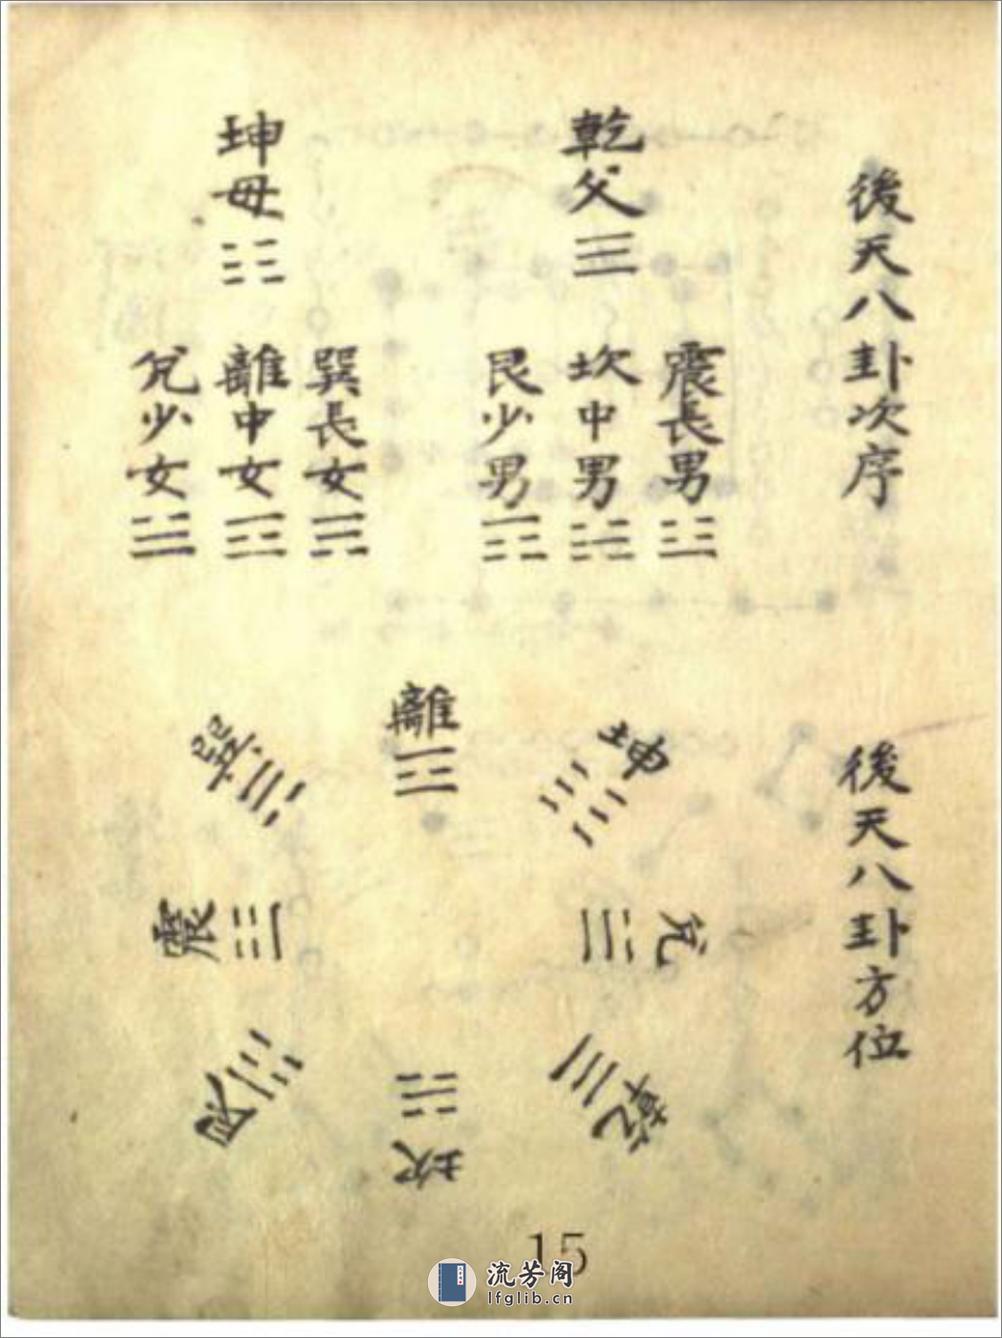 後天八卦次序
乾父
震長男
坎中男
艮少男
坤母
巽長女
離中女
兌少女
後天八卦方位
離
坤
兌
乾
坎
艮
震
巽
15
流芳阁
lfglib.cn